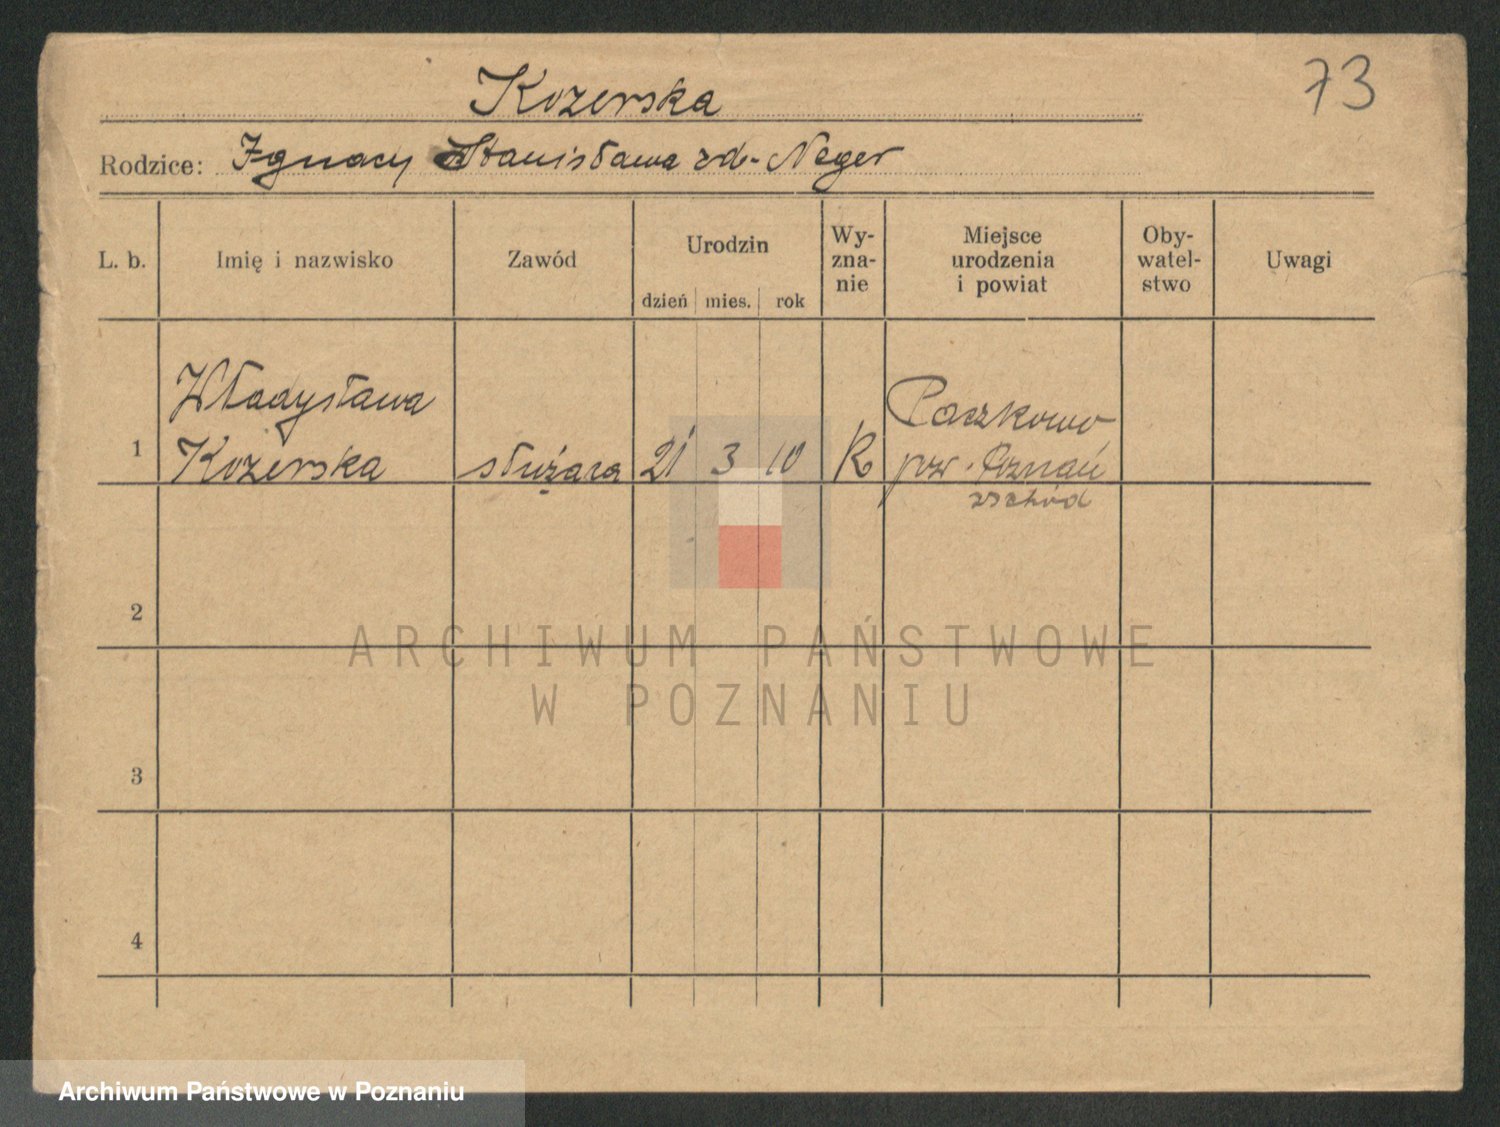 73
Kozerska
Rodzice: Ignacy Stanisława zd. Neger
L. b.
Imię i nazwisko
Zawód
Urodzin
dzień mies. rok
Wy-
zna-
nie
Miejsce
urodzenia
i powiat
Oby-
watel-
stwo
Uwagi
1
Władysława
Kozerska
służąca
21 3 10
R
Paczkowo
pow. Poznań
wschód
2
3
4
ARCHIWUM PAŃSTWOWE
W POZNANIU
Archiwum Państwowe w Poznaniu